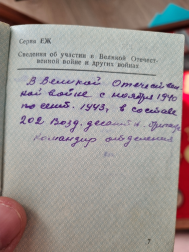 Серия ЕЖ
Сведения об участии в Великой Отечест-
венной войне и других войнах
В Великой Отечествен
ной войне с ноября 1940
по сент. 1943, в составе
202 Возд. десант.
командир отделения
7